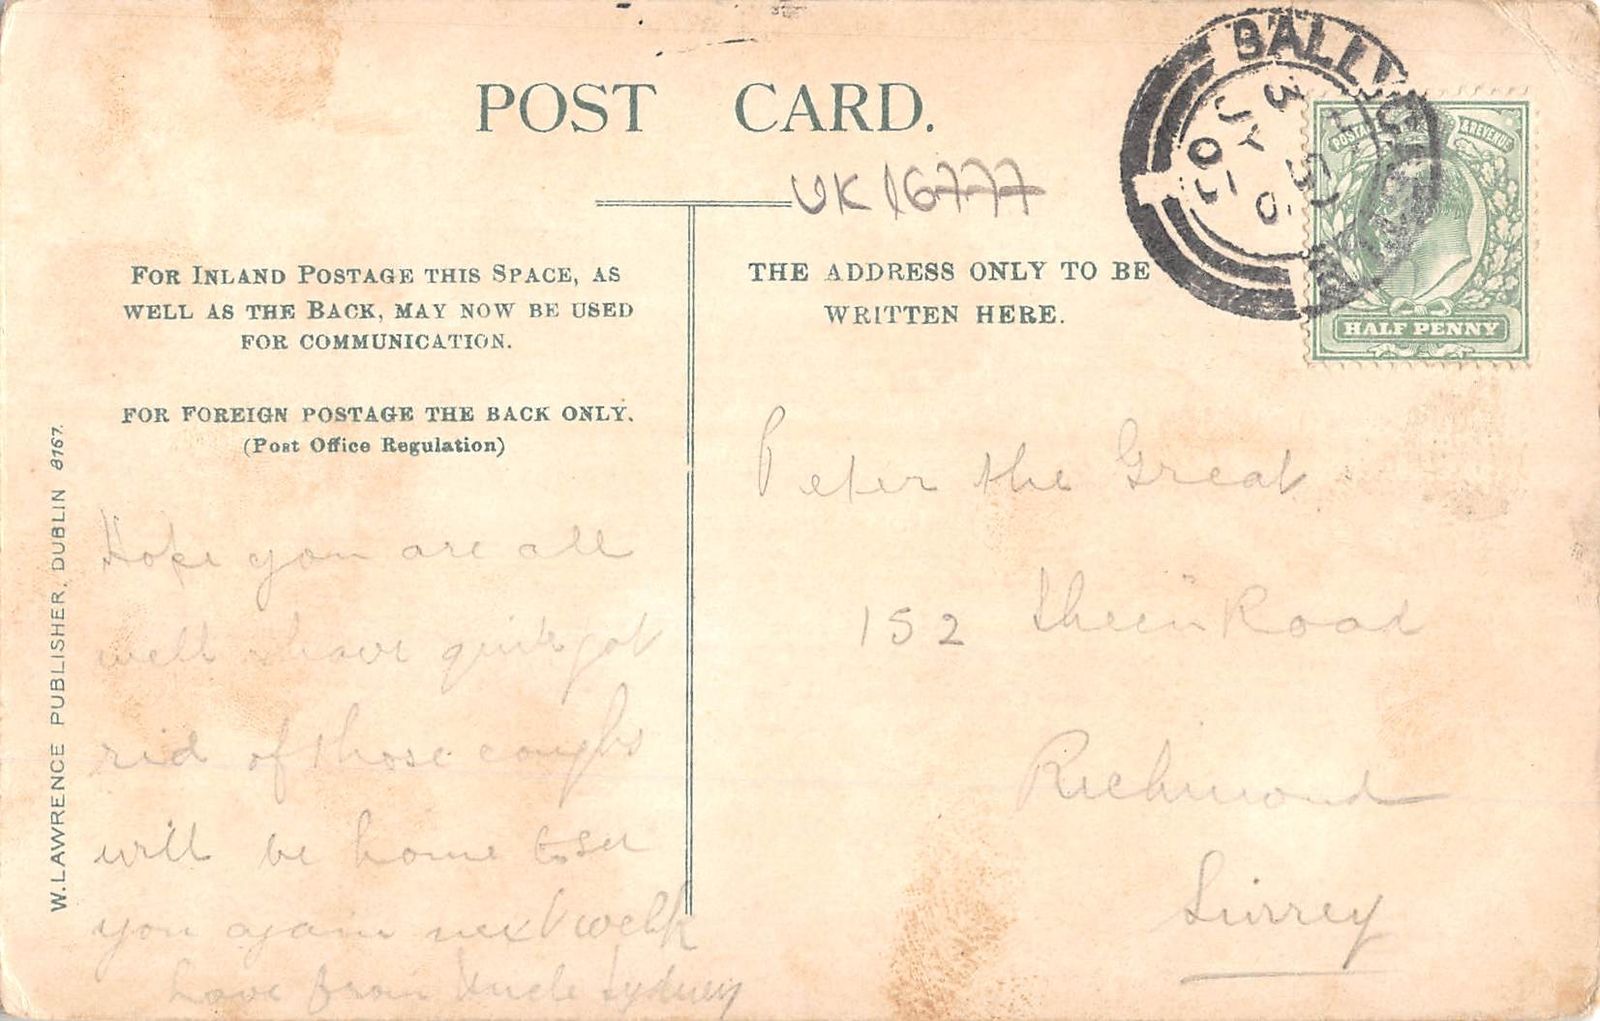 POST CARD.
UK 16777
FOR INLAND POSTAGE THIS SPACE, AS
WELL AS THE BACK, MAY NOW BE USED
FOR COMMUNICATION.
FOR FOREIGN POSTAGE THE BACK ONLY.
(Post Office Regulation)
W. LAWRENCE PUBLISHER, DUBLIN 8167.
Hope you are all
well & have quite got
rid of those coughs
will be home to see
you again next week
Love from Uncle Sydney
THE ADDRESS ONLY TO BE
WRITTEN HERE.
BALLY
JY
HALF PENNY
POSTAGE & REVENUE
Peter the Great
152 Sheen Road
Richmond
Surrey